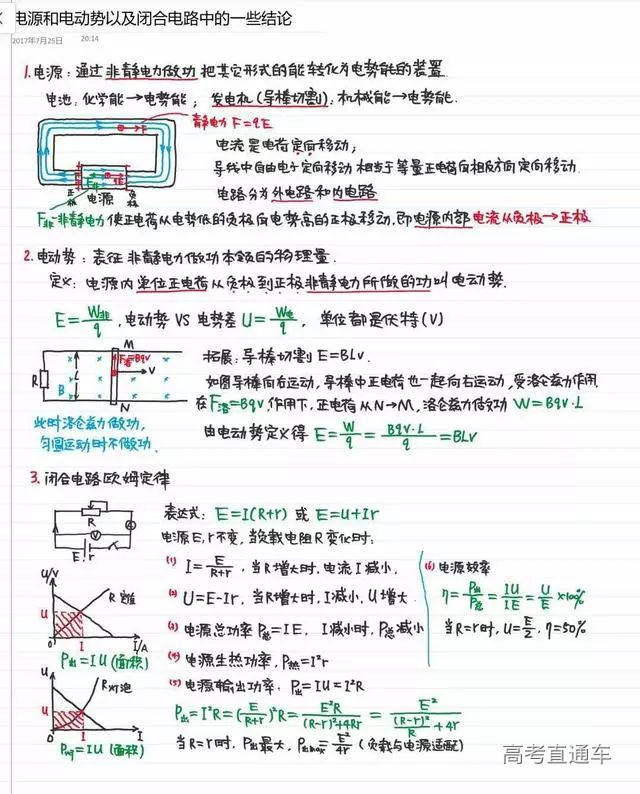 电源和电动势以及闭合电路中的一些结论
2017年7月25日 20:14
1.电源：通过非静电力做功把其它形式的能转化为电势能的装置
电池：化学能→电势能； 发电机(导棒切割)：机械能→电势能.
静电力 F=qE
电流是电荷定向移动；
导线中自由电子定向移动相当于等量正电荷向相反方向定向移动.
电路分为外电路和内电路
正极 电源 负极
F非-非静电力使正电荷从电势低的负极向电势高的正极移动.即电源内部电流从负极→正极
2.电动势：表征非静电力做功本领的物理量.
定义：电源内单位正电荷从负极到正极非静电力所做的功叫电动势.
E=W非/q，电动势 VS 电势差 U=W电/q， 单位都是伏特(V)
M
拓展：导棒切割 E=BLv.
F洛=Bqv
R
L
v
B
如图导棒向右运动，导棒中正电荷也一起向右运动，受洛仑兹力作用
N
在F洛=Bqv作用下，正电荷从N→M，洛仑兹力做功 W=Bqv·L
此时洛仑兹力做功，
匀圆运动时不做功.
由电动势定义得 E=W/q=Bqv·L/q=BLv
3.闭合电路欧姆定律
R
A
V
E r
表达式： E=I(R+r) 或 E=U+Ir
电源E,r不变，当负载电阻R变化时：
(1) I=E/(R+r)，当R增大时，电流I减小，
(2) U=E-Ir，当R增大时，I减小，U增大.
(3) 电源总功率P总=IE， I减小时，P总减小
(4) 电源生热功率，P热=I²r
(5) 电源输出功率. P出=IU=I²R
P出=I²R=(E/(R+r))²R=E²R/((R-r)²+4Rr)=E²/((R-r)²/R+4r)
当R=r时，P出最大，P出max=E²/4r (负载与电源适配)
(6) 电源效率
η=P出/P总=IU/IE=U/E×100%
当R=r时，U=E/2，η=50%
U/V
R定值
U
0 I I/A
P出=IU(面积)
U
R灯泡
U
0 I I
P灯=IU(面积)
高考直通车